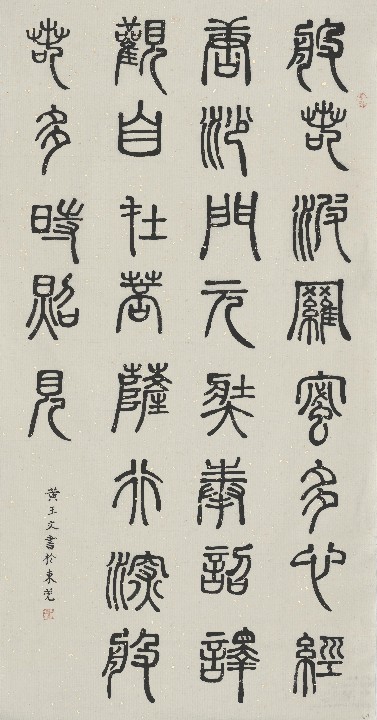 般若波羅蜜多心經
唐沙門元奘奉詔譯
觀自在菩薩行深般
若多時照見
黄王文書於東莞